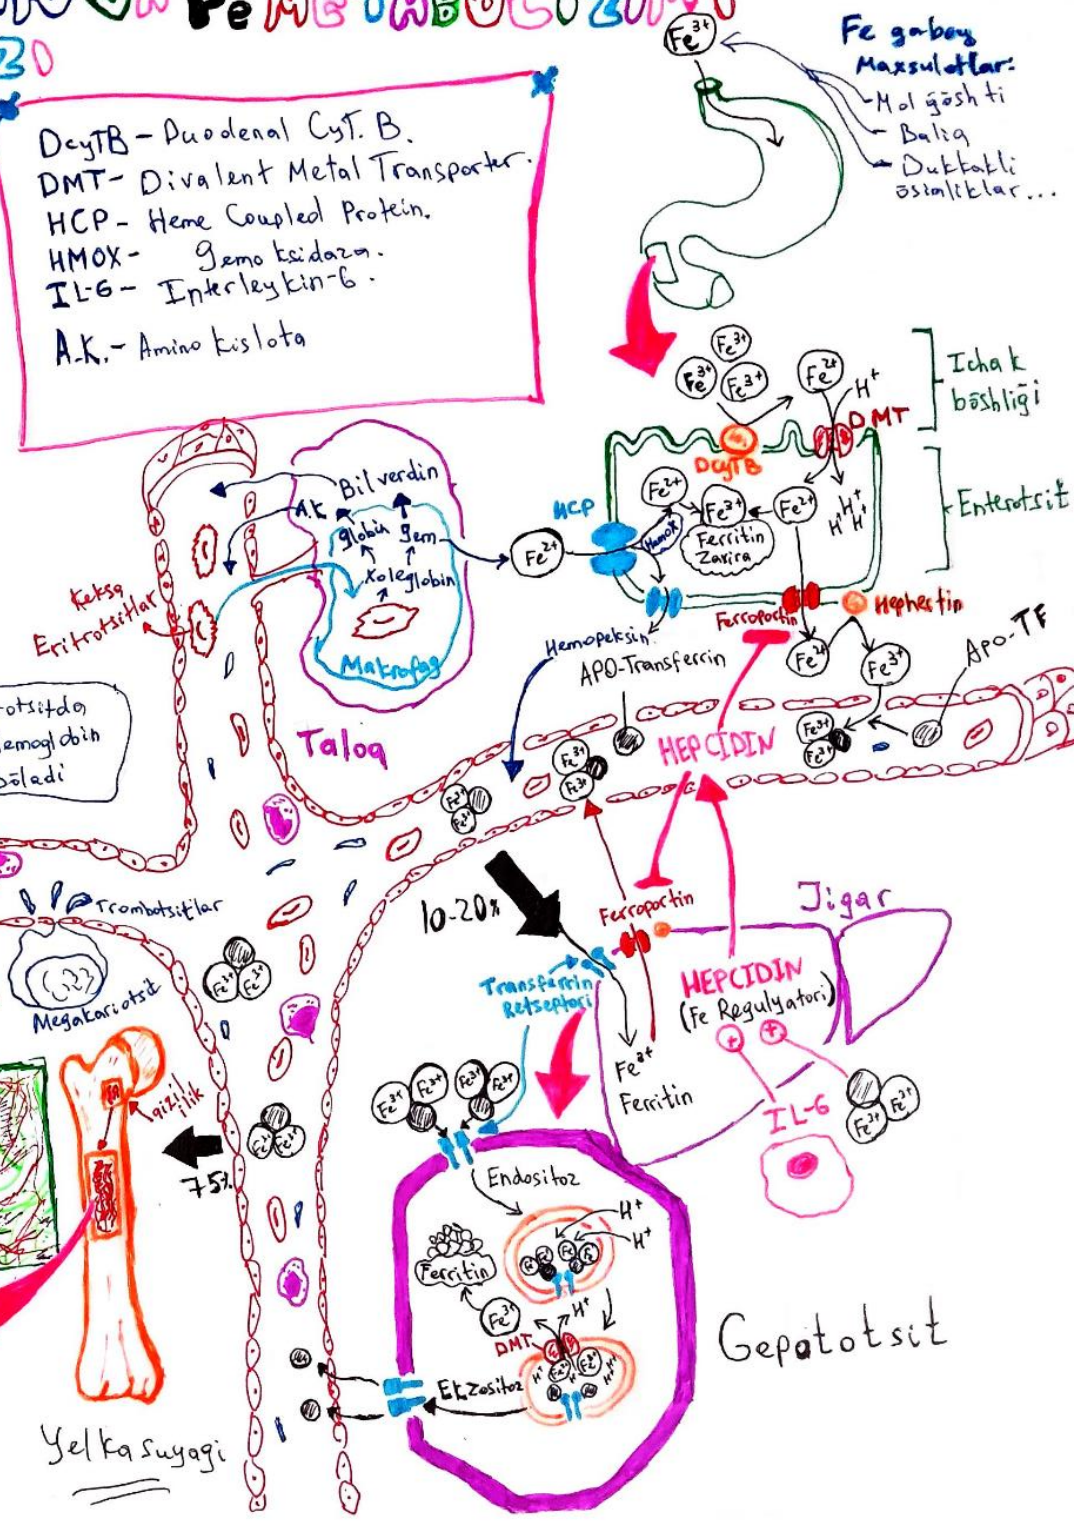 Fe METABOLIZMI
DcyTB - Duodenal CyT. B.
DMT - Divalent Metal Transporter.
HCP - Heme Coupled Protein.
HMOX - gemoksidaza.
IL-6 - Interleykin-6.
A.K. - Amino kislota
Fe³⁺
Fe gaboy
Maxsulotlar:
- Mol gōshti
- Baliq
- Dukkakli
ōsimliklar...
Fe³⁺
Fe³⁺
Fe³⁺
Fe²⁺
H⁺
DMT
DcyTB
Ichak
bōshliği
Enterotsit
HCP
Fe²⁺
Fe²⁺
Hmox
Fe³⁺
Fe²⁺
H⁺
H⁺
H⁺
H⁺
Ferritin
Zaxira
Ferroportin
Hephestin
Fe²⁺
Fe³⁺
APO-TF
Hemopeksin
APO-Transferrin
Fe³⁺
Fe³⁺
HEPCIDIN
Bilverdin
A.K
globin
gem
Xoleglobin
Makrofag
Taloq
Keksa
Eritrotsitlar
otsitda
emoglobin
bōladi
Fe³⁺
Fe³⁺
Fe³⁺
Fe³⁺
Trombotsitlar
Megakariotsit
Fe³⁺
Fe³⁺
10-20%
Ferroportin
Transferrin
Retseptori
Jigar
HEPCIDIN
(Fe Regulyatori)
+
+
Fe³⁺
Ferritin
IL-6
Fe³⁺
Fe³⁺
Fe³⁺
Fe³⁺
Fe³⁺
Fe³⁺
qizil
ilik
75%
Fe³⁺
Fe³⁺
Endositoz
H⁺
H⁺
Ferritin
Fe³⁺
H⁺
DMT
Ekzositoz
Gepatotsit
Yelka suyagi